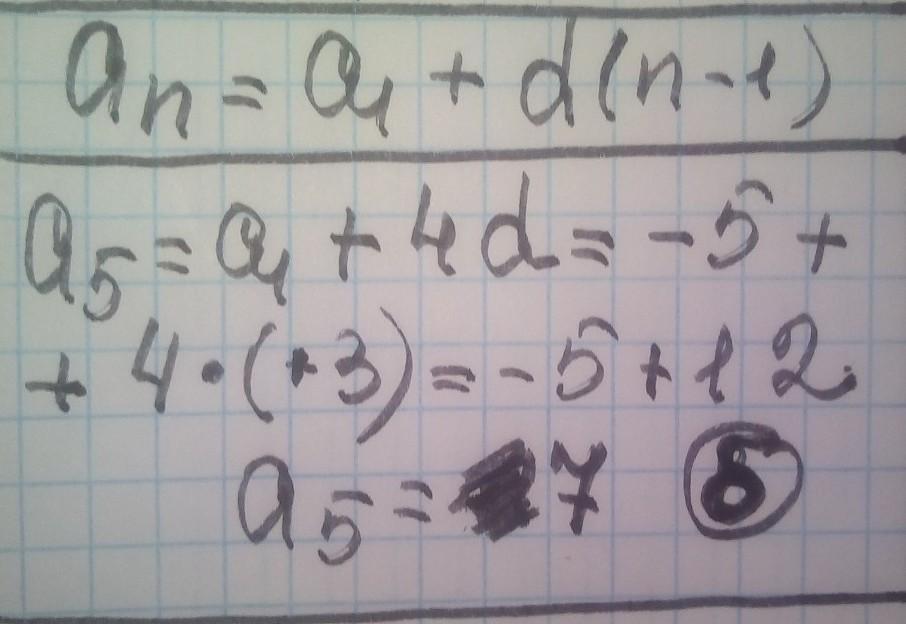 aₙ = a₁ + d(n-1)
a₅ = a₁ + 4d = -5 +
+ 4·(·3) = -5 + 12
a₅ = 7 б